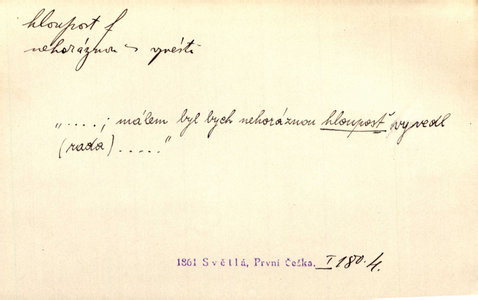 hloupost f
nehoráznou ~ vyvésti
„....; málem byl bych nehoráznou hloupost vyvedl
(rada) ....."
1861 Světlá, První Češka. I 180. 4.